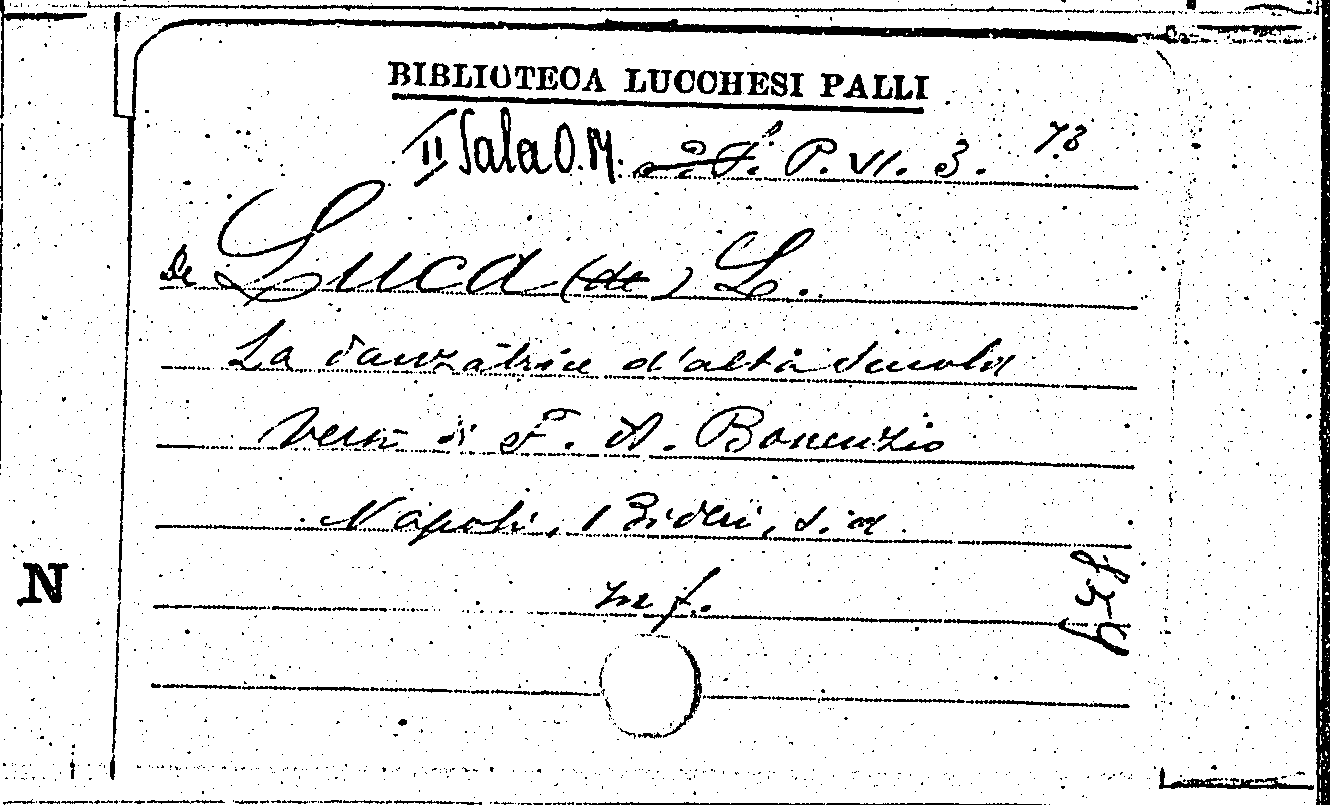 BIBLIOTECA LUCCHESI PALLI
II Sala O. M. P. VI. 3. 73
De Luca (de) L.
La danzatrice d'alta scuola
Versi di F. A. Bonenzio
Napoli, Bideri, s. a.
in f.
N